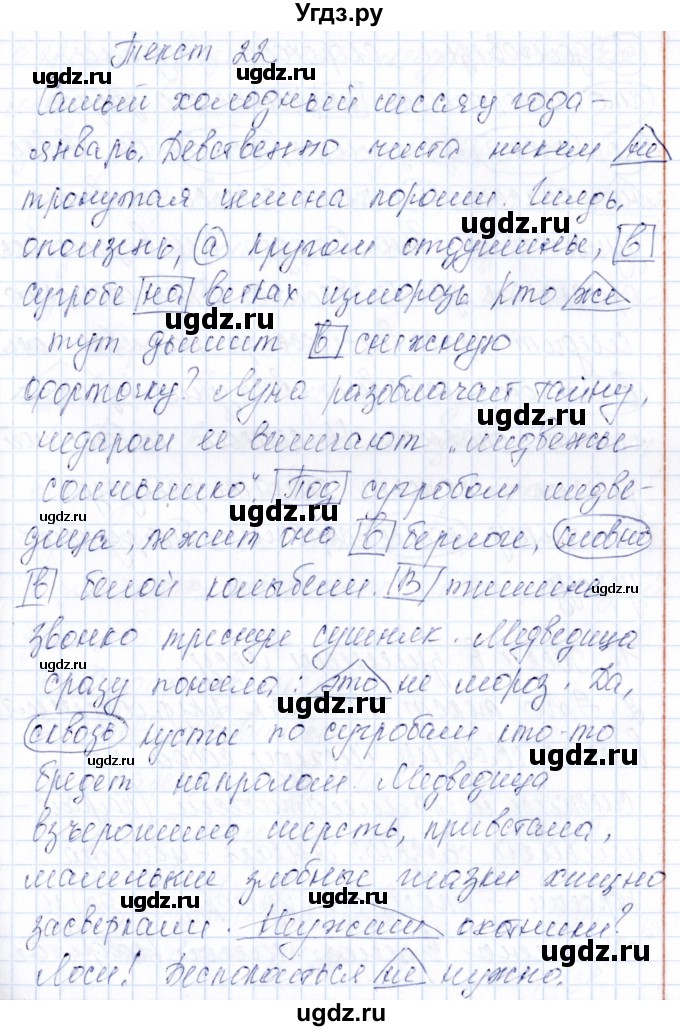 Угдз.ру
Текст 22
ugdz.ru ugdz.ru
Самый холодный месяц года –
январь. Девственно чиста никем не
ugdz.ru
тронутая целина пороши. Гладь,
ugdz.ru
оползень, а кругом отдушины, в
сугробе на ветках изморозь Кто же
ugdz.ru
тут дышит в снежную
ugdz.ru
форточку? Луна разоблачает тайну,
ugdz.ru
недаром её величают „медвежье
солнышко“. Под сугробом медве-
ugdz.ru
дица, лежит она в берлоге, словно
ugdz.ru
в белой колыбели. В тишине
звонко треснул сушняк. Медведица
ugdz.ru
сразу поняла: это не мороз. Да,
ugdz.ru
сквозь кусты по сугробам кто-то
ugdz.ru
бредет напролом. Медведица
взъерошила шерсть, привстала,
ugdz.ru
маленькие злобные глазки хищно
засверкали. Неужели охотники?
ugdz.ru
Лоси! Беспокоиться не нужно.
ugdz.ru
ugdz.ru